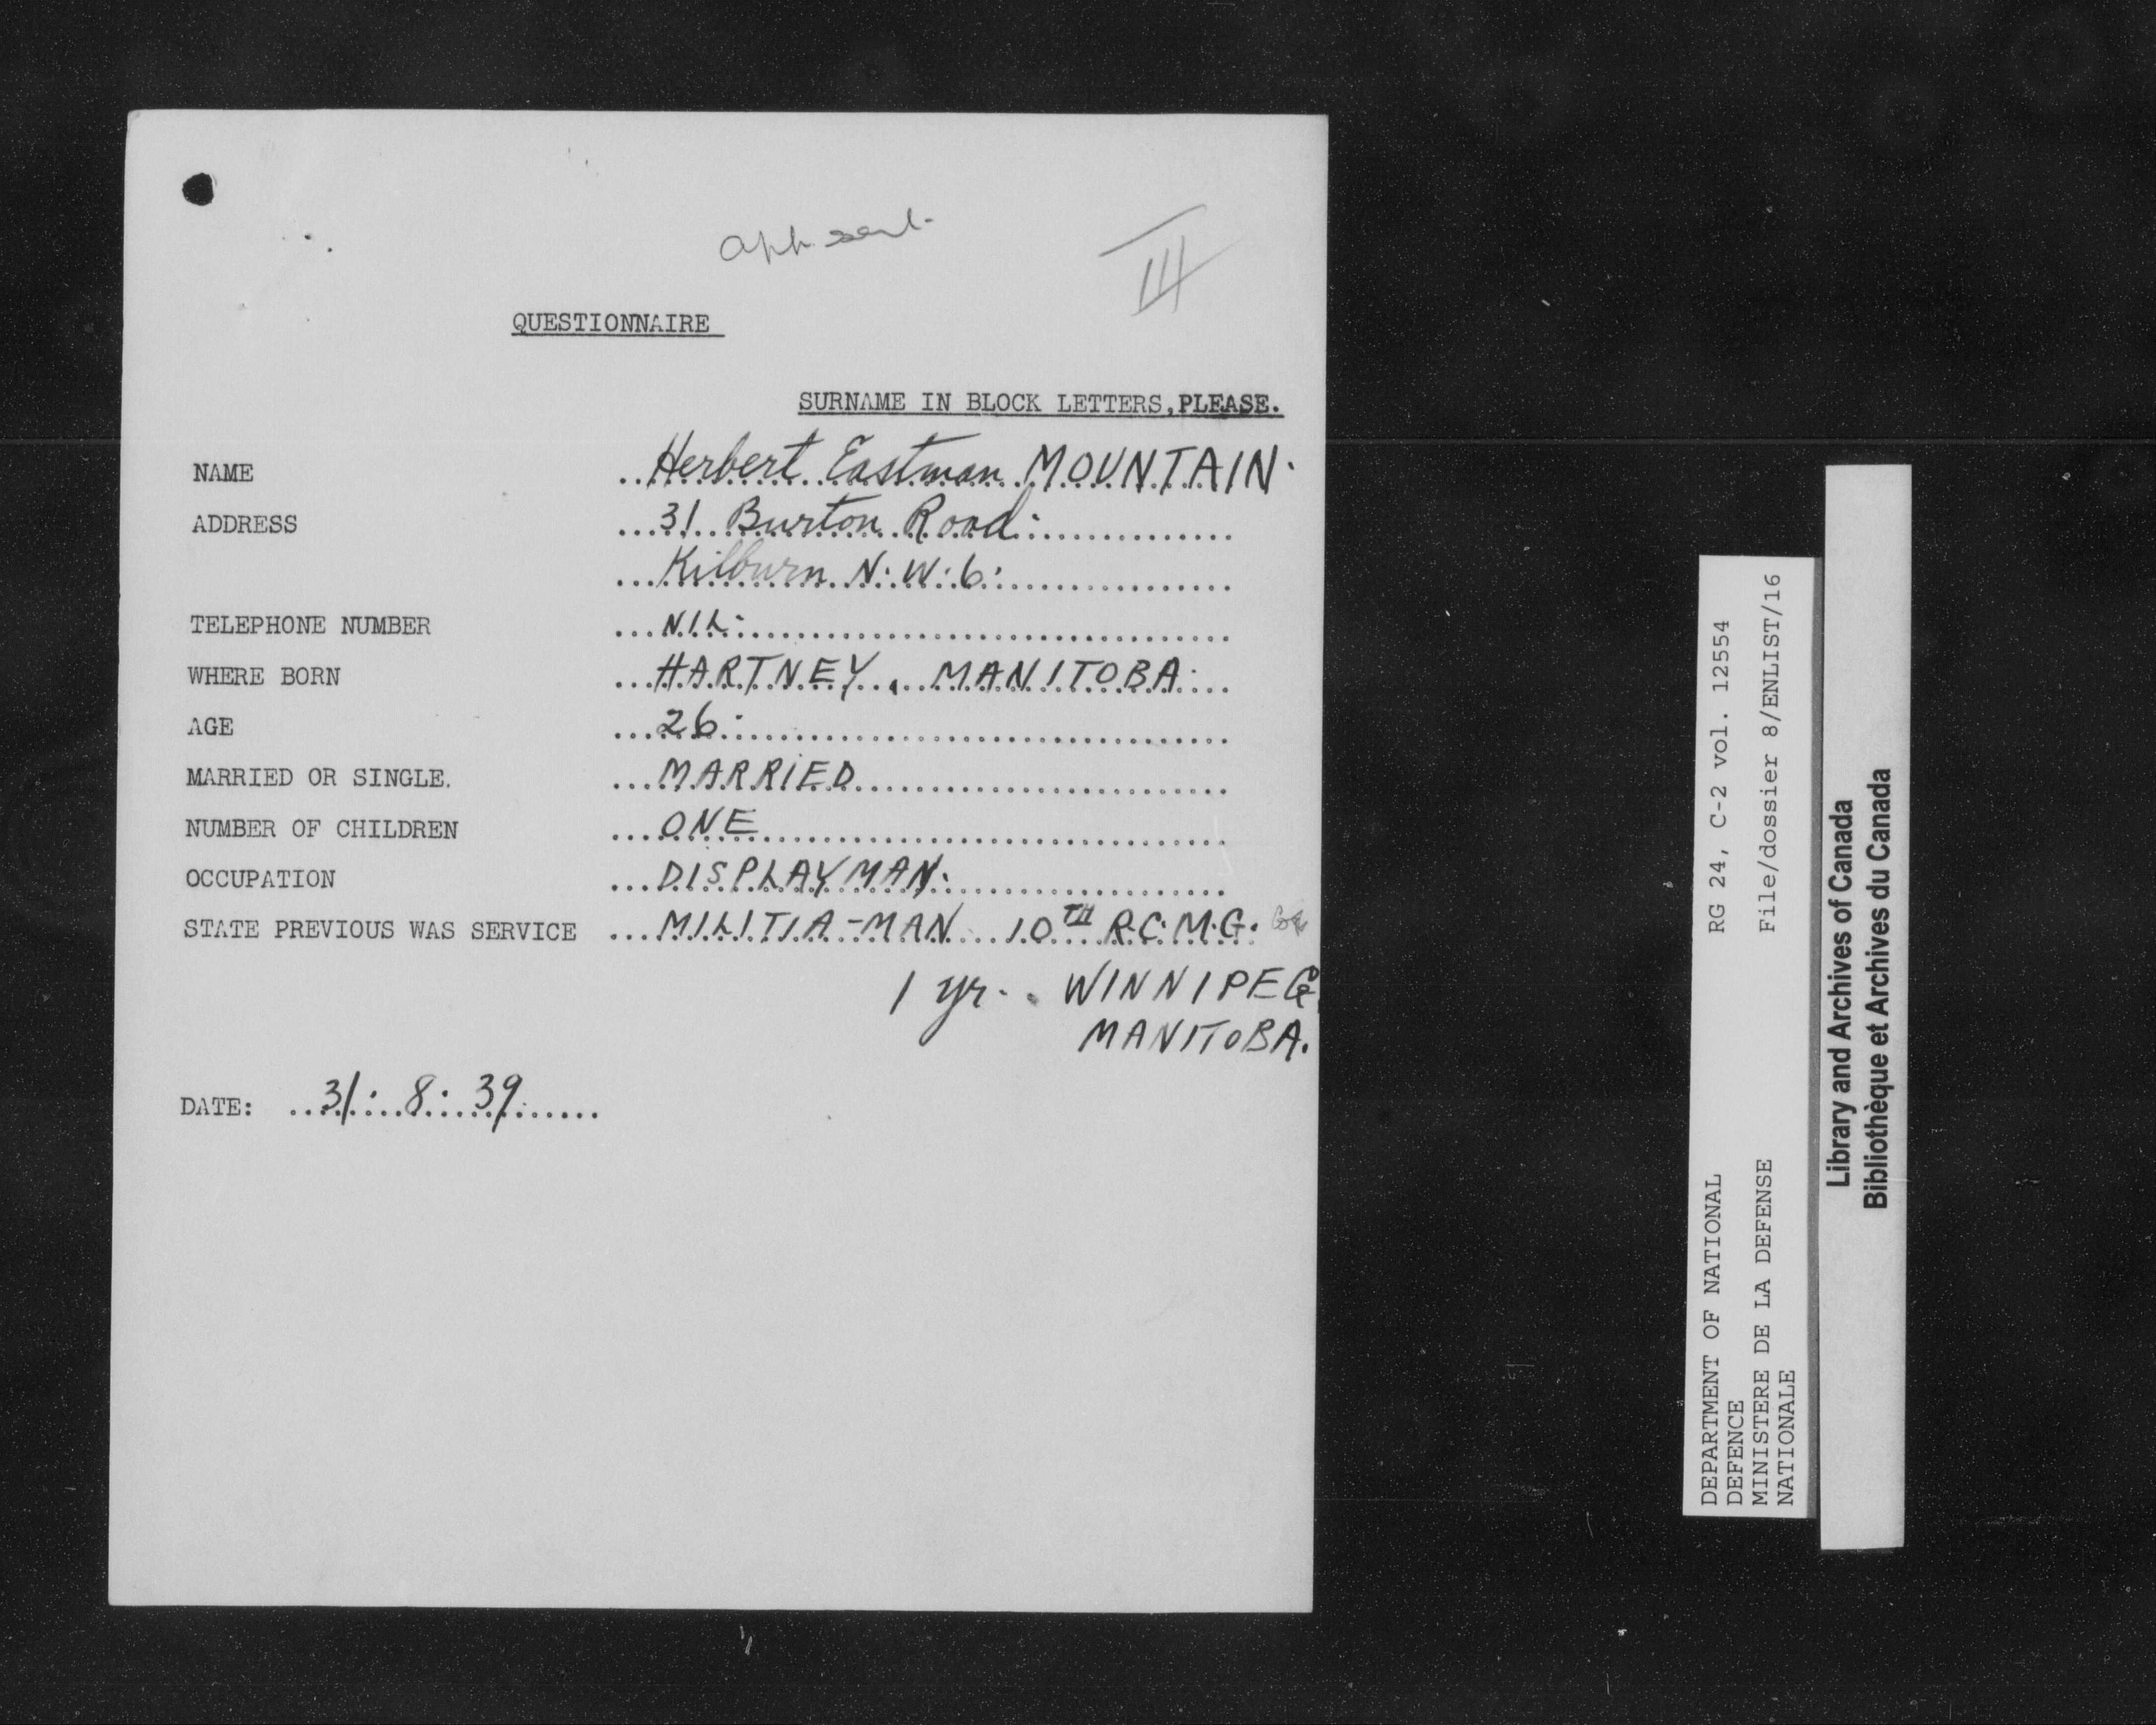 aph. sent.
III
QUESTIONNAIRE
SURNAME IN BLOCK LETTERS, PLEASE.
NAME ..Herbert Eastman MOUNTAIN.
ADDRESS ...31 Burton Road:
...Kilburn N:W:6:
TELEPHONE NUMBER ...NIL:
WHERE BORN ...HARTNEY, MANITOBA.
AGE ...26:
MARRIED OR SINGLE. ...MARRIED
NUMBER OF CHILDREN ...ONE
OCCUPATION ...DISPLAYMAN.
STATE PREVIOUS WAS SERVICE ...MILITIA-MAN 10TH R.C.M.G.
1 yr. . WINNIPEG
MANITOBA.
DATE: ..31: 8: 39......
RG 24, C-2 vol. 12554
File/dossier 8/ENLIST/16
DEPARTMENT OF NATIONAL
DEFENCE
MINISTERE DE LA DEFENSE
NATIONALE
Library and Archives of Canada
Bibliothèque et Archives du Canada